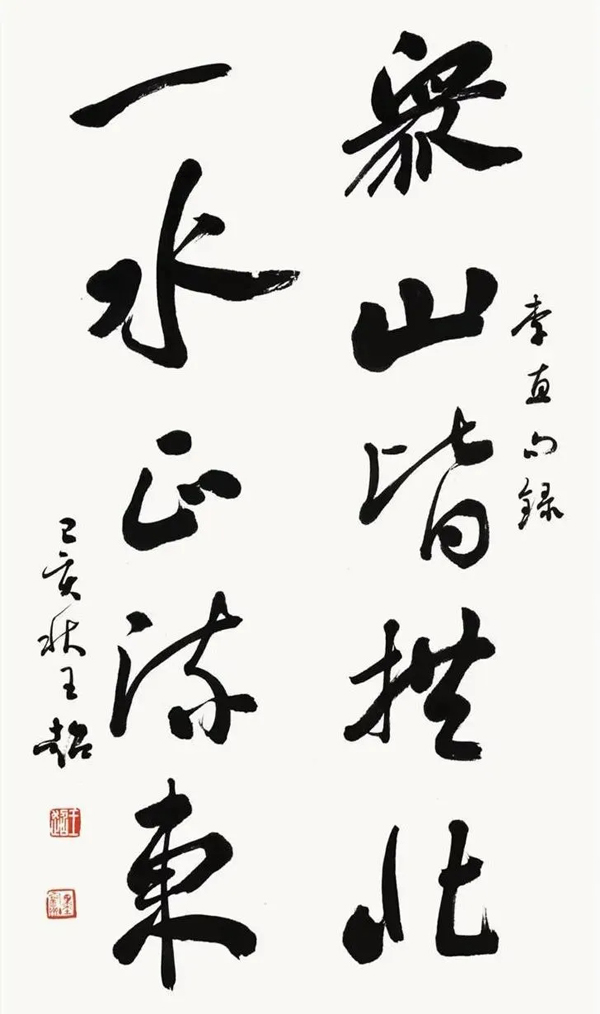 李直句録
衆山皆拱北
一水正流東
己亥秋王超